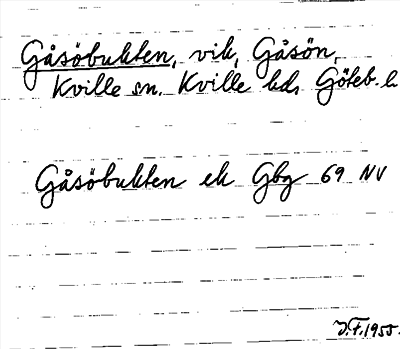 Gåsöbukten, vik, Gåsön,
Kville sn. Kville hd. Göteb. l.
Gåsöbukten ek Gbg 69 NV
J.F.1955.